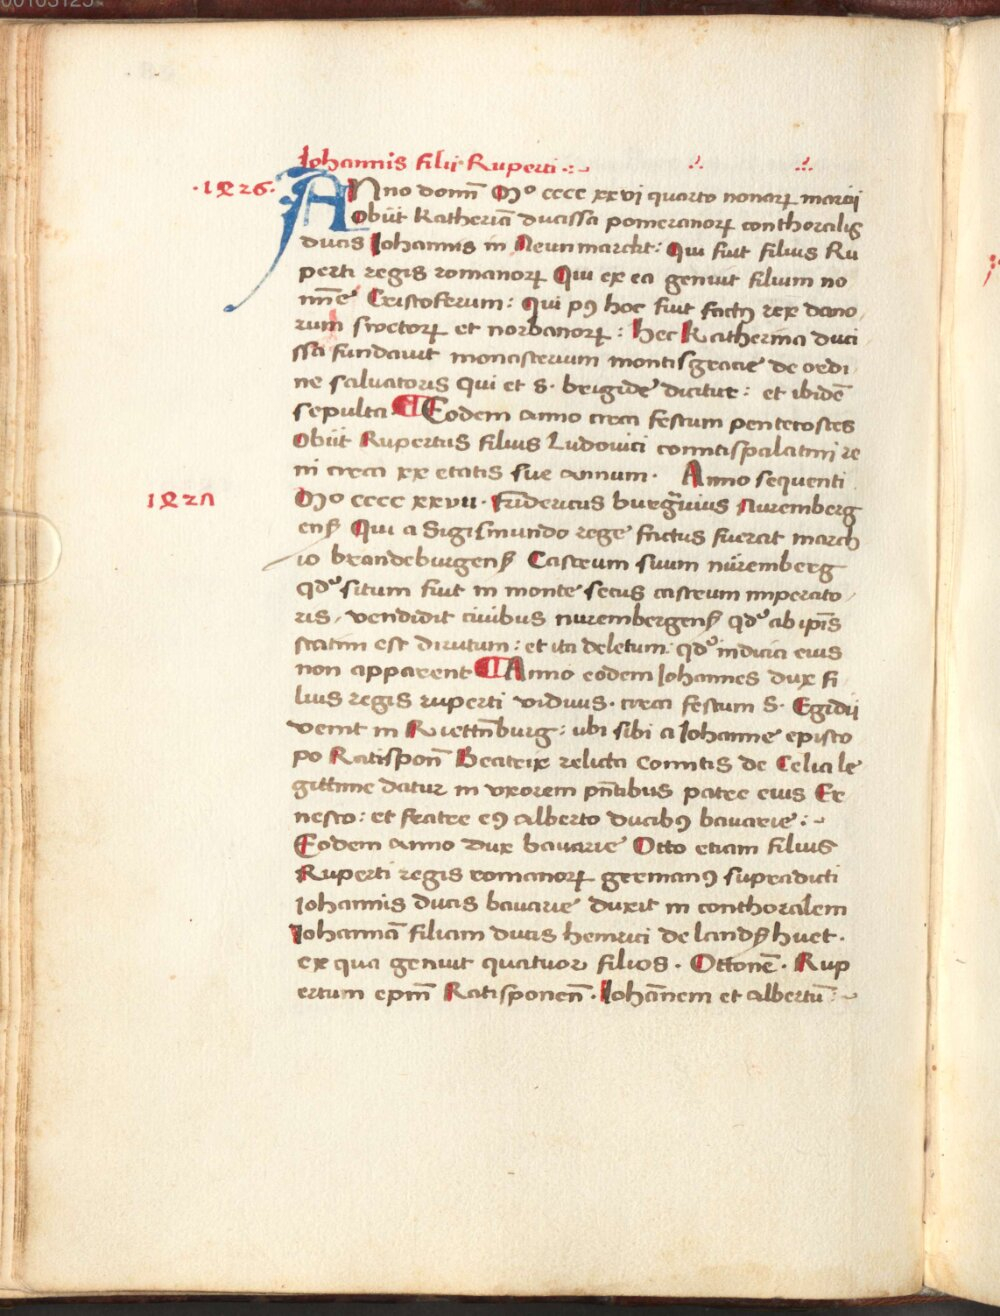 Iohannis filii Ruperti
·1426·
ANno domī Mº cccc xxvj quarto nonaꝝ marcij
obiit Katherīa ducissa pomeranoꝝ conthoralis
ducis Iohannis in Neunmarckt: Qui fuit filius Ru
perti regis romanoꝝ Qui ex ea genuit filium no
mīe Cristoferum: qui pꝰ hoc fuit factꝰ rex dano
rum swetoꝝ et norbanoꝝ: hec Katherina duci
ssa fundauit monasterium montisgracie de ordi
ne saluatoris Qui et S. brigide dicitur: et ibidē
sepulta ¶ Eodem anno circa festum pentecostes
Obiit Rupertus filius Ludouici comitispalatini re
ni circa xx etatis sue annum. Anno sequenti
1427
Mº cccc xxvii. Fridericus burg̃uius Nuremberg
enß Qui a Sigismundo rege factus fuerat march
io brandeburgenß Castrum suum nüremberg
qdº situm fuit in monte secus castrum imperato
ris, vendidit ciuibus nurembergenß qdº ab ip̄is
statim est dirutum: et ita deletum: qdº indicia eius
non apparent ¶ Anno eodem Iohannes dux fi
lius regis ruperti viduus. circa festum S. Egidij
venit in Riettn̄burg: ubi sibi a Iohanne episco
po Ratispon̄ Beatrix relicta Comitis de Celia le
gittime datur in vxorem pn̄tibus patre eius Er
nesto: et fratre eꝰ alberto ducibꝰ bauarie:
Eodem anno dux bauarie Otto etiam filius
Ruperti regis romanoꝝ germanꝰ supradicti
Iohannis ducis bauarie duxit in conthoralem
Iohannā filiam ducis heinrici de landßhuet.
ex qua genuit quatuor filios. Ottonē. Rup
ertum epm̄ Ratisponen̄. Iohān̄em et albertū: